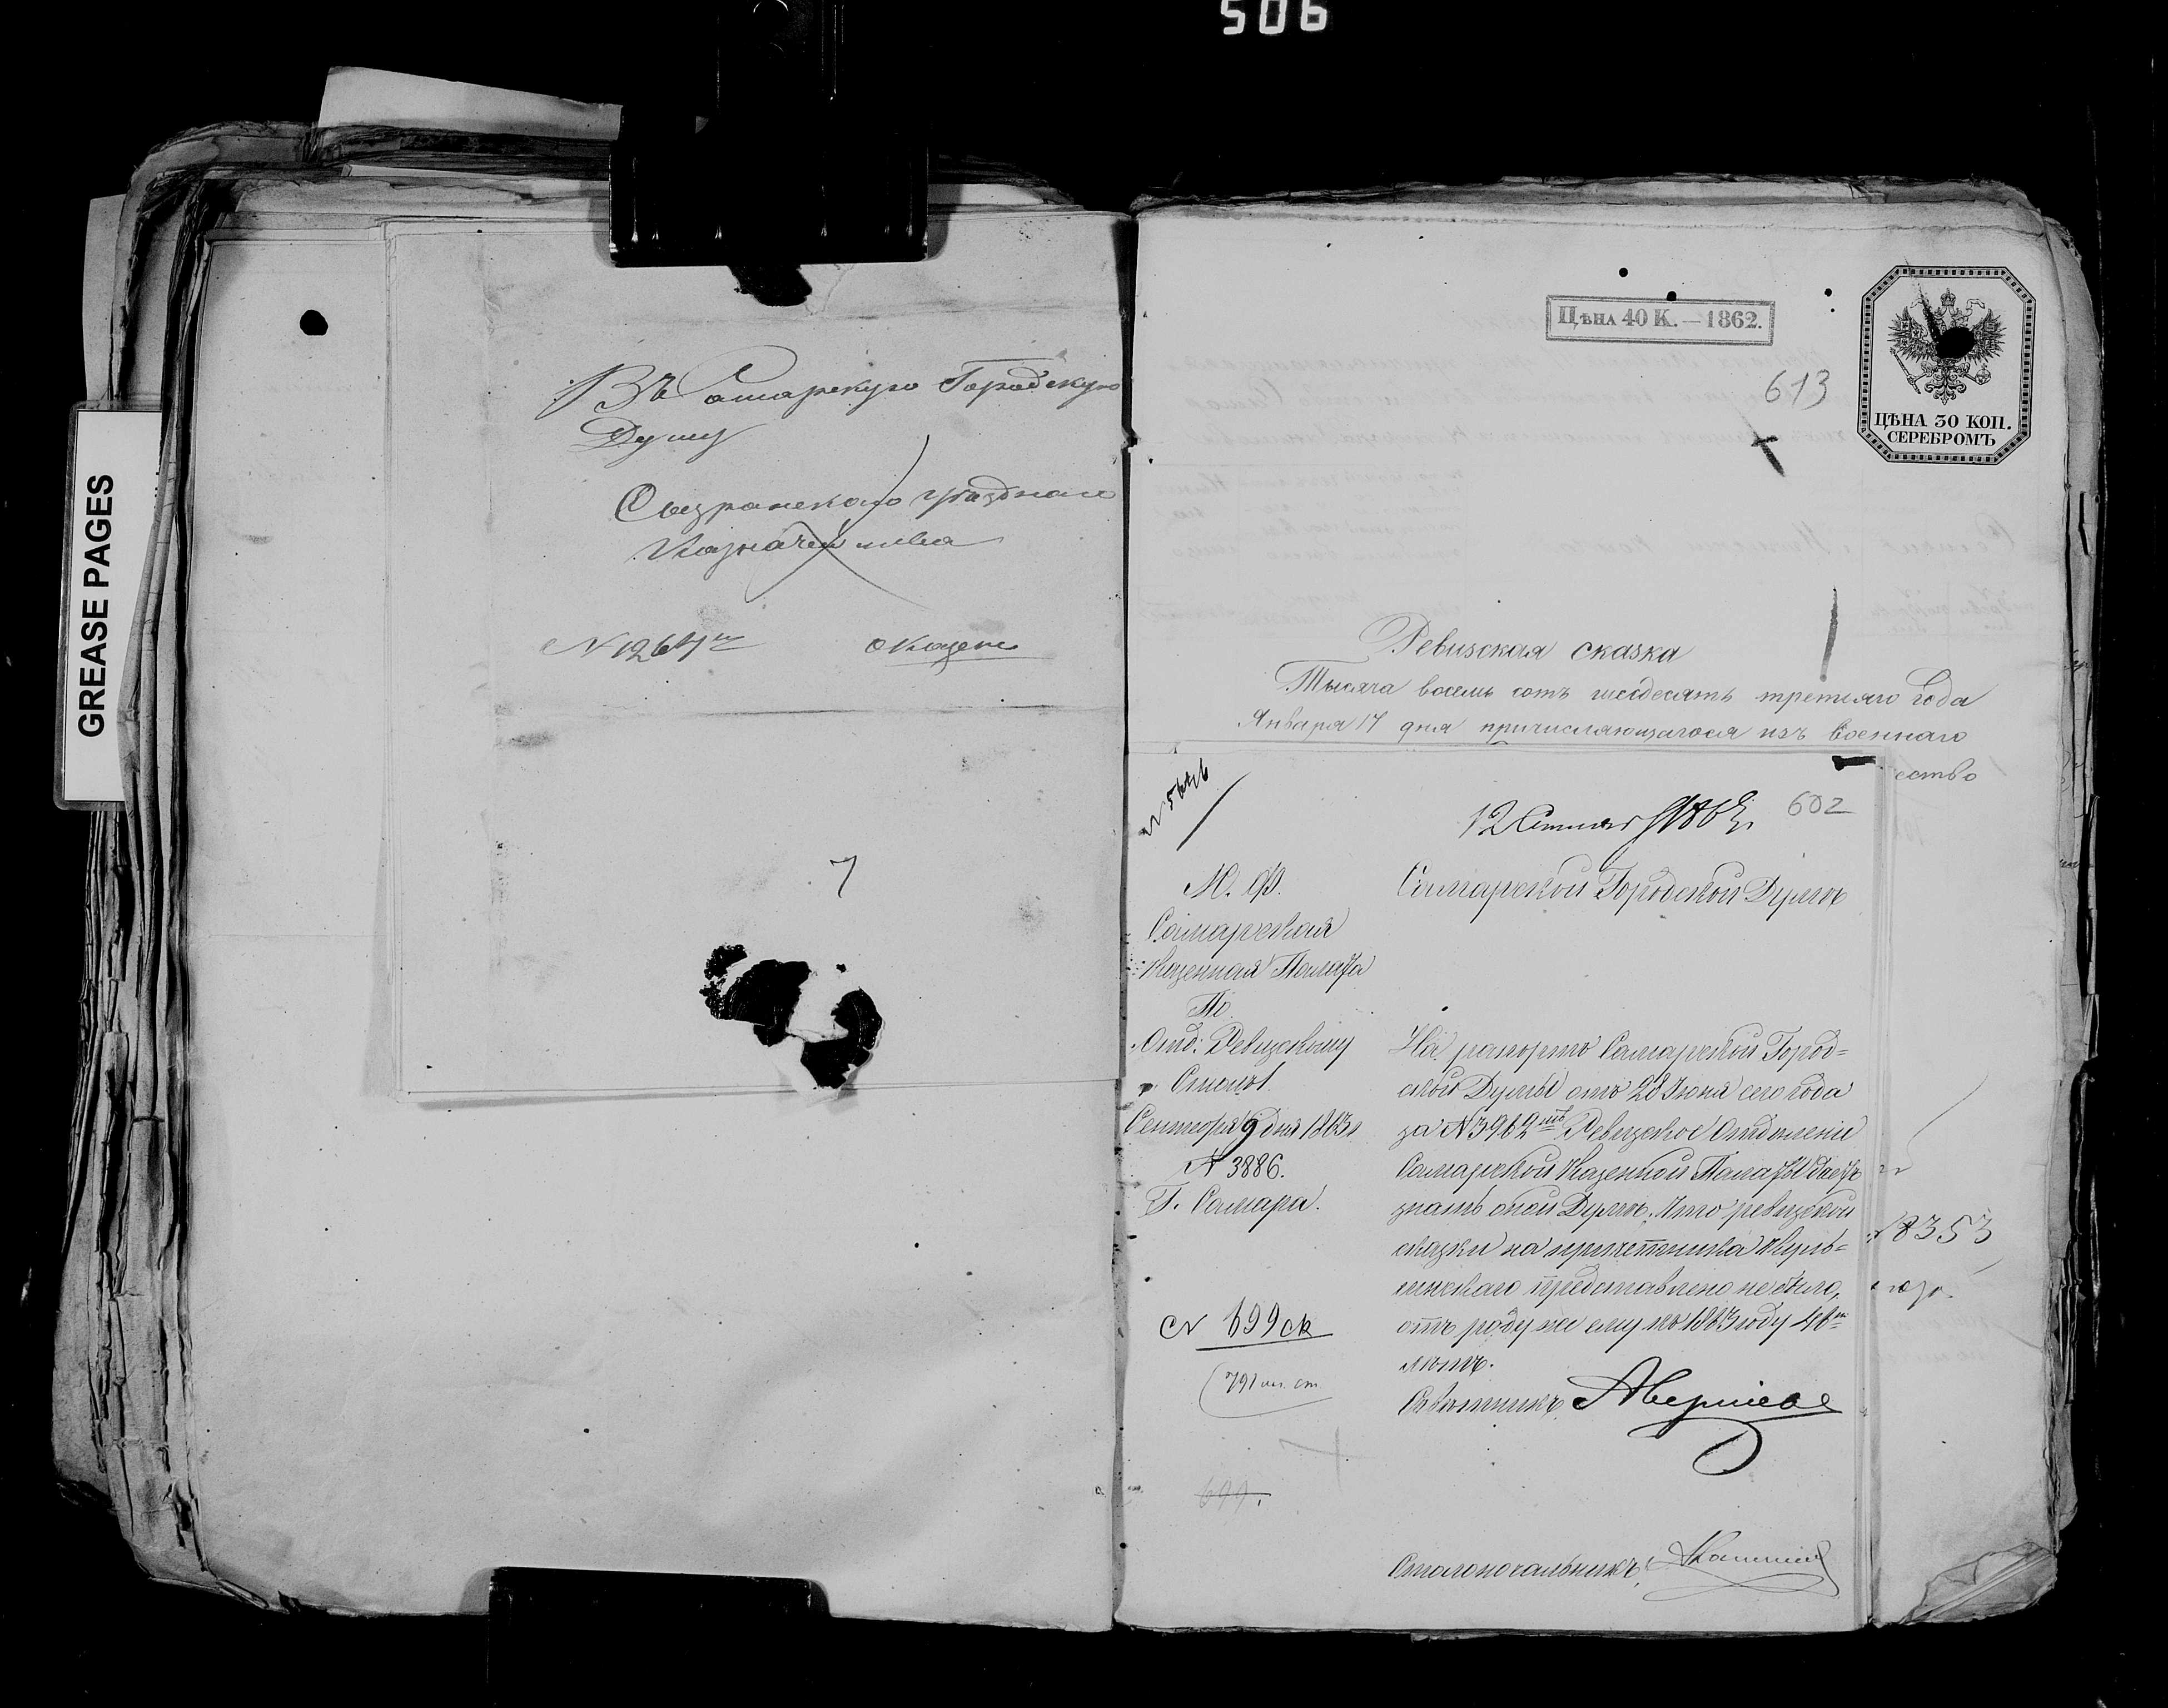 506
GREASE PAGES
Въ Самарскую Городскую
Думу
Сызранскаго уѣзднаго
Казначейства
N 1264
о казен
7
Цѣна 40 К. — 1862.
ЦѢНА 30 КОП.
СЕРЕБРОМЪ
613
Ревизская сказка
Тысяча восемь сотъ шесдесятъ третьяго года
Января 17 дня причисляющагося изъ военнаго
ество
602
М. Ф.
Самарская
Казенная Палата
По
Отд: Ревизскому
Столъ 1.
Сентября 9 дня 1863 г
N 3886.
Г. Самара.
N 699 ск
699.
Самарской Городской Думѣ
На рапортъ Самарской Город=
ской Думы отъ 28 Іюня сего года
за N 3962 Ревизское Отдѣленіе
Самарской Казенной Палаты даетъ
знать оной Думѣ, что ревизской
сказки на причетника
представлено не было,
отъ роду же ему по 1863 году
лѣтъ.
Совѣтникъ
Столоначальникъ
8353